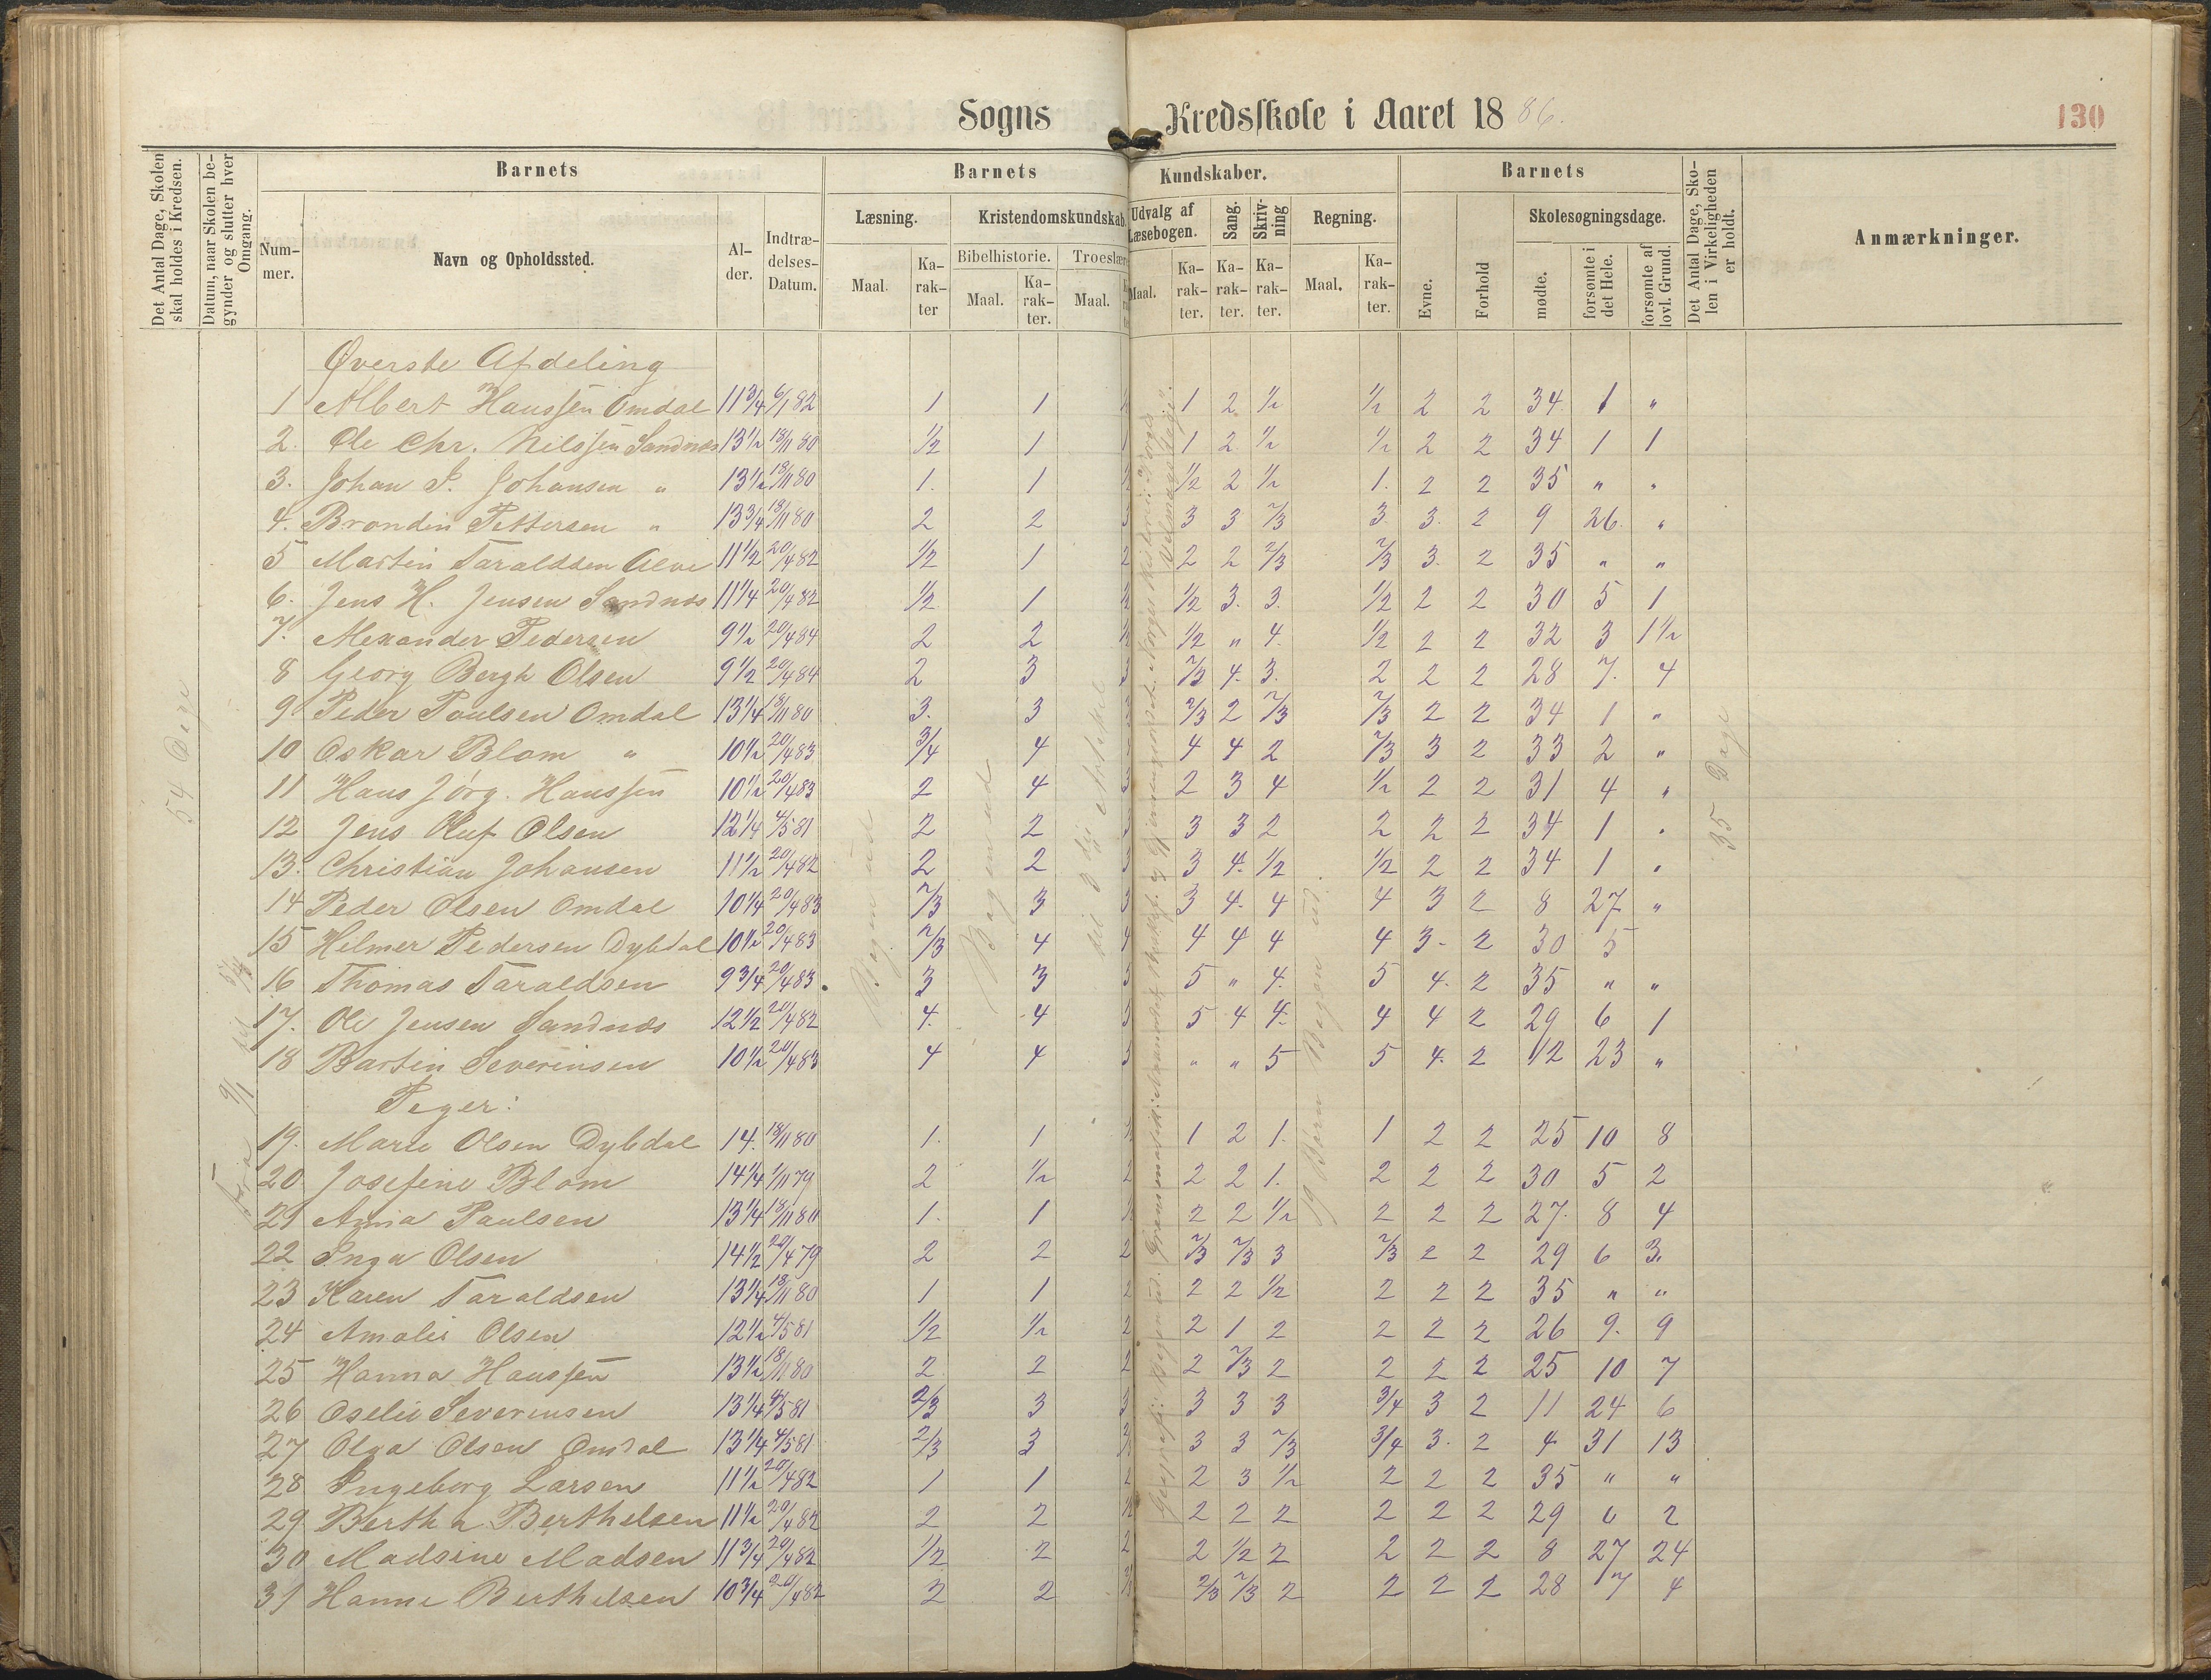 Sogns Kredsskole i Aaret 1886.
130
Det Antal Dage, Skolen skal holdes i Kredsen.
Datum, naar Skolen begynder og slutter hver Omgang.
Barnets
Nummer.
Navn og Opholdssted.
Alder.
Indtrædelses-Datum.
Barnets Kundskaber.
Læsning.
Maal.
Karakter
Kristendomskundskab.
Bibelhistorie.
Maal.
Karakter.
Troeslære
Maal.
Udvalg af Læsebogen.
Maal.
Karakter.
Sang.
Karakter.
Skrivning
Karakter.
Regning.
Maal.
Karakter.
Barnets
Evne.
Forhold
Skolesøgningsdage.
mødte.
forsømte i det Hele.
forsømte af lovl. Grund.
Det Antal Dage, Skolen i Virkeligheden er holdt.
Anmærkninger.
54 Dage
Fra 9/1 til
Bogen ud
Bogen ud
til 3die Artikel
19 Børn Bogen ud.
35 Dage
Øverste Afdeling
1 Albert Hanssen Omdal 11 3/4 6/1 82 1 1 1 2 1/2 1/2 2 2 34 1 "
2. Ole Chr. Nilssen Sandnæs 13 1/2 18/11 80 1/2 1 1 1 2 1/2 1/2 2 2 34 1 1
3. Johan S. Johansen " 13 1/2 18/11 80 1. 1 1/2 2 1/2 1. 2 2 35 " "
4. Brondin Pettersen " 13 3/4 18/11 80 2 2 3 3 3 2/3 3 3. 2 9 26. "
5 Martin Taraldsen Alve 11 1/2 20/4 82 1/2 1 2 2 2 2/3 2/3 3. 2 35 " "
6. Jens H. Jensen Sandnæs 11 1/4 20/4 82 1/2 1 1/2 3. 3. 1/2 2 2 30 5 1
7. Alexander Pedersen 9 1/2 20/4 84 2 2 1/2 " 4. 1/2 2 2 32 3 1 1/2
8 Georg Bergh Olsen 9 1/2 20/4 84 2 3 3 2/3 4. 3. 2 2 2 28 7. 4
9 Peder Poulsen Omdal 13 1/4 18/11 80 3. 3 2/3 2 2/3 2/3 2 2 34 1 "
10 Oskar Blom " 10 1/2 20/4 83 3/4 4 4 4 2 2/3 3 2 33 2 "
11 Hans Jörg. Hanssen 10 1/2 20/4 83 2 4 3 2 3 4 1/2 2 2 31 4 "
12 Jens Oluf Olsen 12 1/4 4/5 81 2 2 3 3 3 2 2 2 2 34 1 "
13. Christian Johansen 11 1/2 20/4 82 2 2 3 3 4. 1/2 1/2 2 2 34 1 "
14 Peder Olsen Omdal 10 1/4 20/4 83 2/3 3 3 3 4. 4 4 3 2 8 27 "
15 Helmer Pedersen Dybdal 10 1/2 20/4 83 2/3 4 4 4 4 4 4 3- 2 30 5
16 Thomas Taraldsen 9 3/4 20/4 83. 3 3 5 " 4. 5 4. 2 35 " "
17. Ole Jensen Sandnæs 12 1/2 20/4 82 4. 4 5 4 4. 4 4 2 29 6 1
18 Bartin Severinsen 10 1/2 20/4 83 4 4 " " 5 5 4. 2 12 23 "
Piger:
19. Marie Olsen Dybdal 14. 18/11 80 1. 1 1 2 1. 1 2 2 25 10 8
20 Josefine Blom 14 1/4 1/11 79 2 1/2 2 2 2 1. 2 2 2 30 5 2
21 Anna Paulsen 13 1/4 18/11 80 1. 1 2 2 1/2 2 2 2 27. 8 4
22 Inga Olsen 14 1/2 20/4 79 2 2 2 2/3 2/3 3 2/3 2 2 29 6 3.
23 Karen Taraldsen 13 1/4 18/11 80 1 1 2 2 2 1/2 2 2 2 35 " "
24 Amalie Olsen 12 1/2 4/5 81 1/2 1/2 2 2 1 2 2 2 2 26 9. 9
25 Hanna Hanssen 13 1/2 18/11 80 2 2 2 2 2/3 2 2 2 2 25 10 7
26 Oselie Severinsen 13 1/4 4/5 81 2/3 3 3 3 3 3 3/4 3 2 11 24 6
27 Olga Olsen Omdal 13 1/4 4/5 81 2/3 3 3 3 2/3 3/4 3. 2 4 31 13
28 Ingeborg Larsen 11 1/2 20/4 82 1 1 2 2 3 1/2 2 2 2 35 " "
29 Bertha Berthelsen 11 1/2 20/4 82 2 2 2 2 2 2 2 2 29 6 2
30 Madsine Madsen 11 3/4 20/4 82 1/2 2 2 2 1/2 2 2 2 2 8 27 24
31 Hanne Berthelsen 10 3/4 20/4 82 2 2 2/3 2/3 2 2 2 2 28 7 4